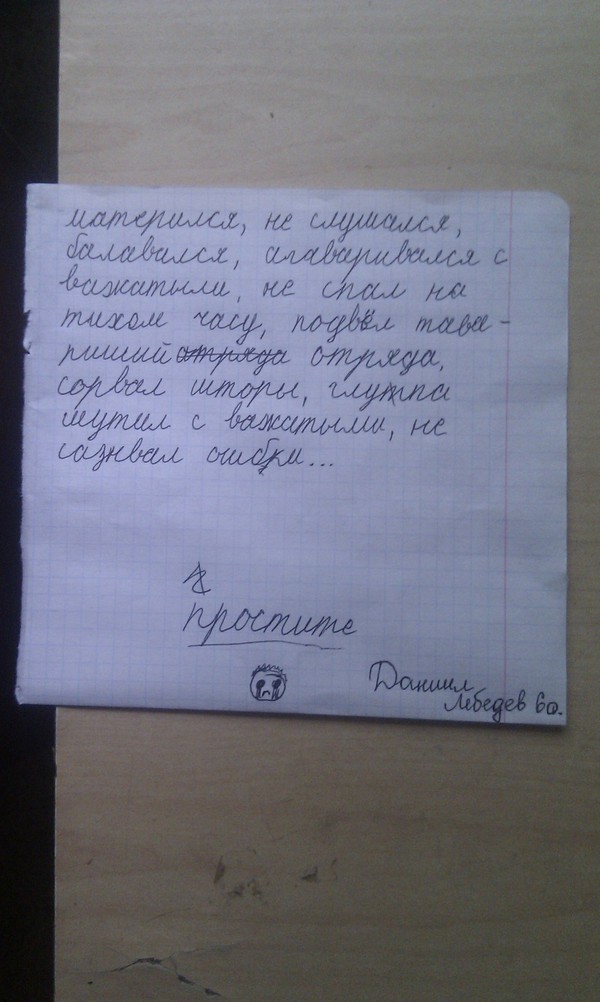 матерился, не слушался,
балавался, агаваривался с
важатыми, не спал на
тихом часу, подвёл тава-
рищий отряда отряда,
сорвал шторы, глупа
шутил с важатыми, не
сазнвал ошибки...
простите
Даниил
Лебедев 6о.